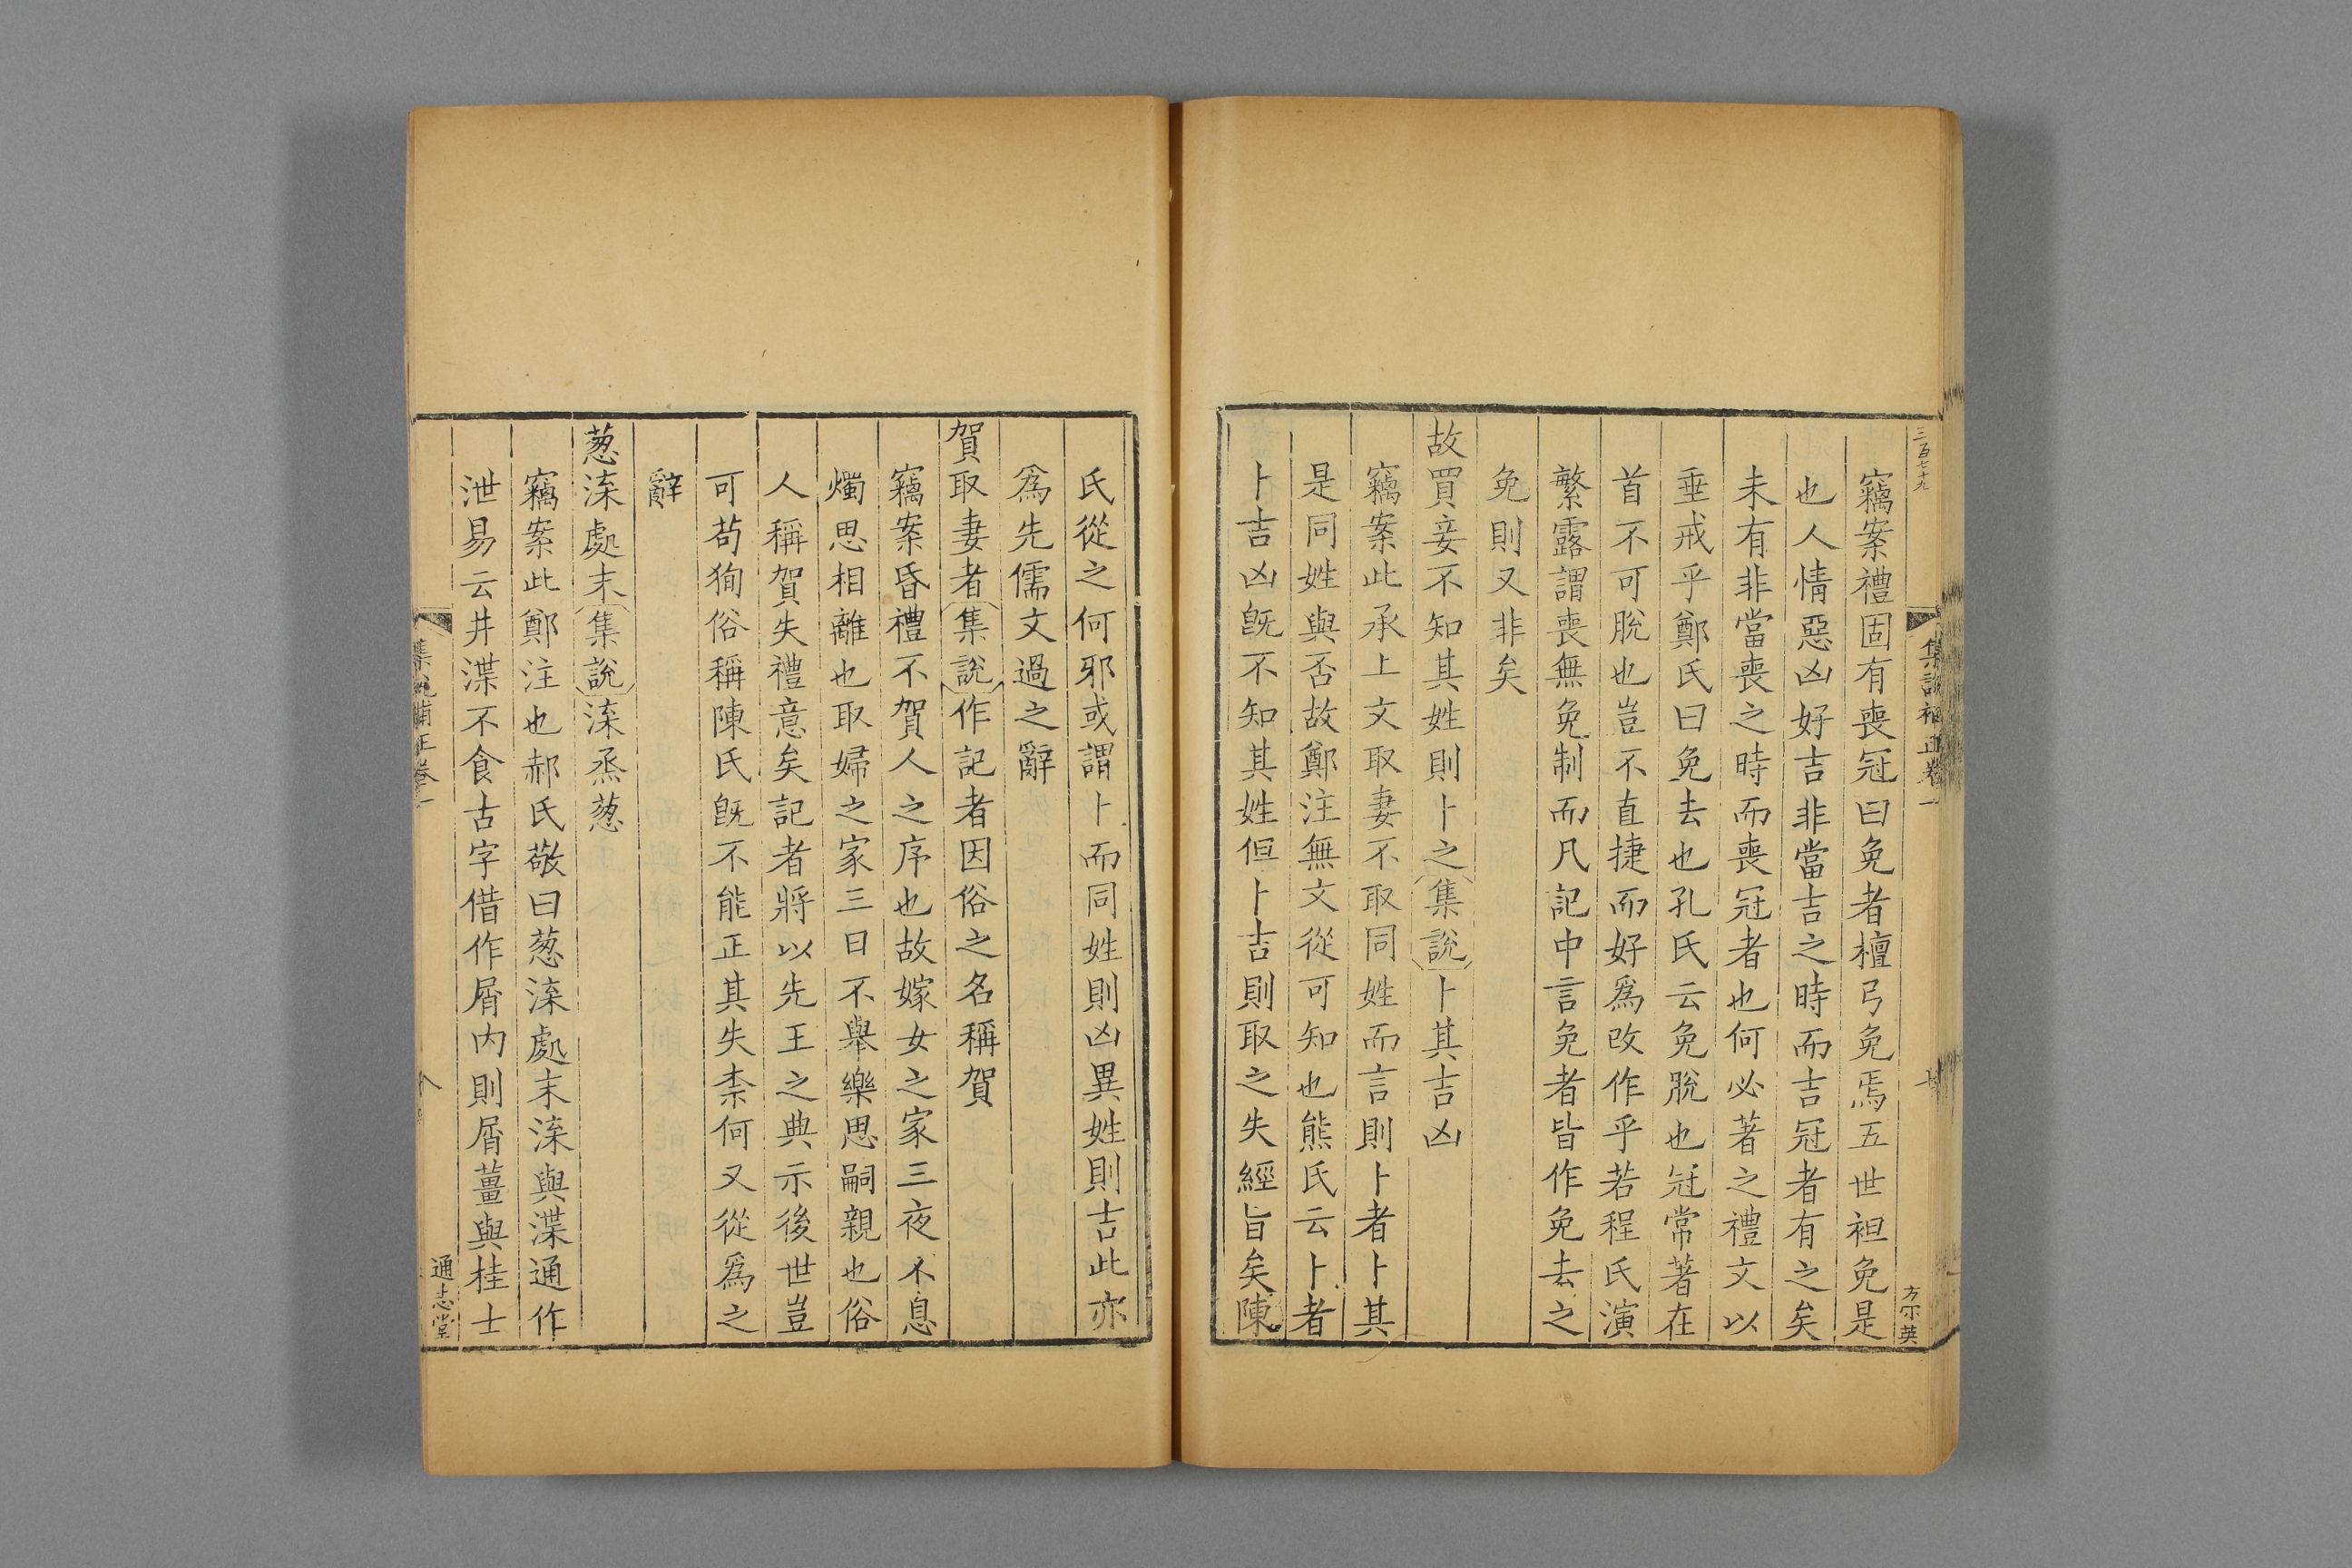 三百七十九
集說補正卷一
方不英
竊案禮固有喪冠曰免者檀弓免焉五世袒免是
也人情惡凶好吉非當吉之時而吉冠者有之矣
未有非當喪之時而喪冠者也何必著之禮文以
垂戒乎鄭氏曰免去也孔氏云免脫也冠常著在
首不可脫也豈不直捷而好爲改作乎若程氏演
繁露謂喪無免制而凡記中言免者皆作免去之
免則又非矣
故買妾不知其姓則卜之集說卜其吉凶
竊案此承上文取妻不取同姓而言則卜者卜其
是同姓與否故鄭注無文從可知也熊氏云卜者
卜吉凶旣不知其姓但卜吉則取之失經旨矣陳
氏從之何邪或謂卜而同姓則凶異姓則吉此亦
爲先儒文過之辭
賀取妻者集說作記者因俗之名稱賀
竊案昏禮不賀人之序也故嫁女之家三夜不息
燭思相離也取婦之家三日不舉樂思嗣親也俗
人稱賀失禮意矣記者將以先王之典示後世豈
可苟狥俗稱陳氏旣不能正其失柰何又從爲之
辭
葱渿處末集說渿烝葱
竊案此鄭注也郝氏敬曰葱渿處末渿與渫通作
泄易云井渫不食古字借作屑内則屑薑與桂士
集說補正卷一
通志堂